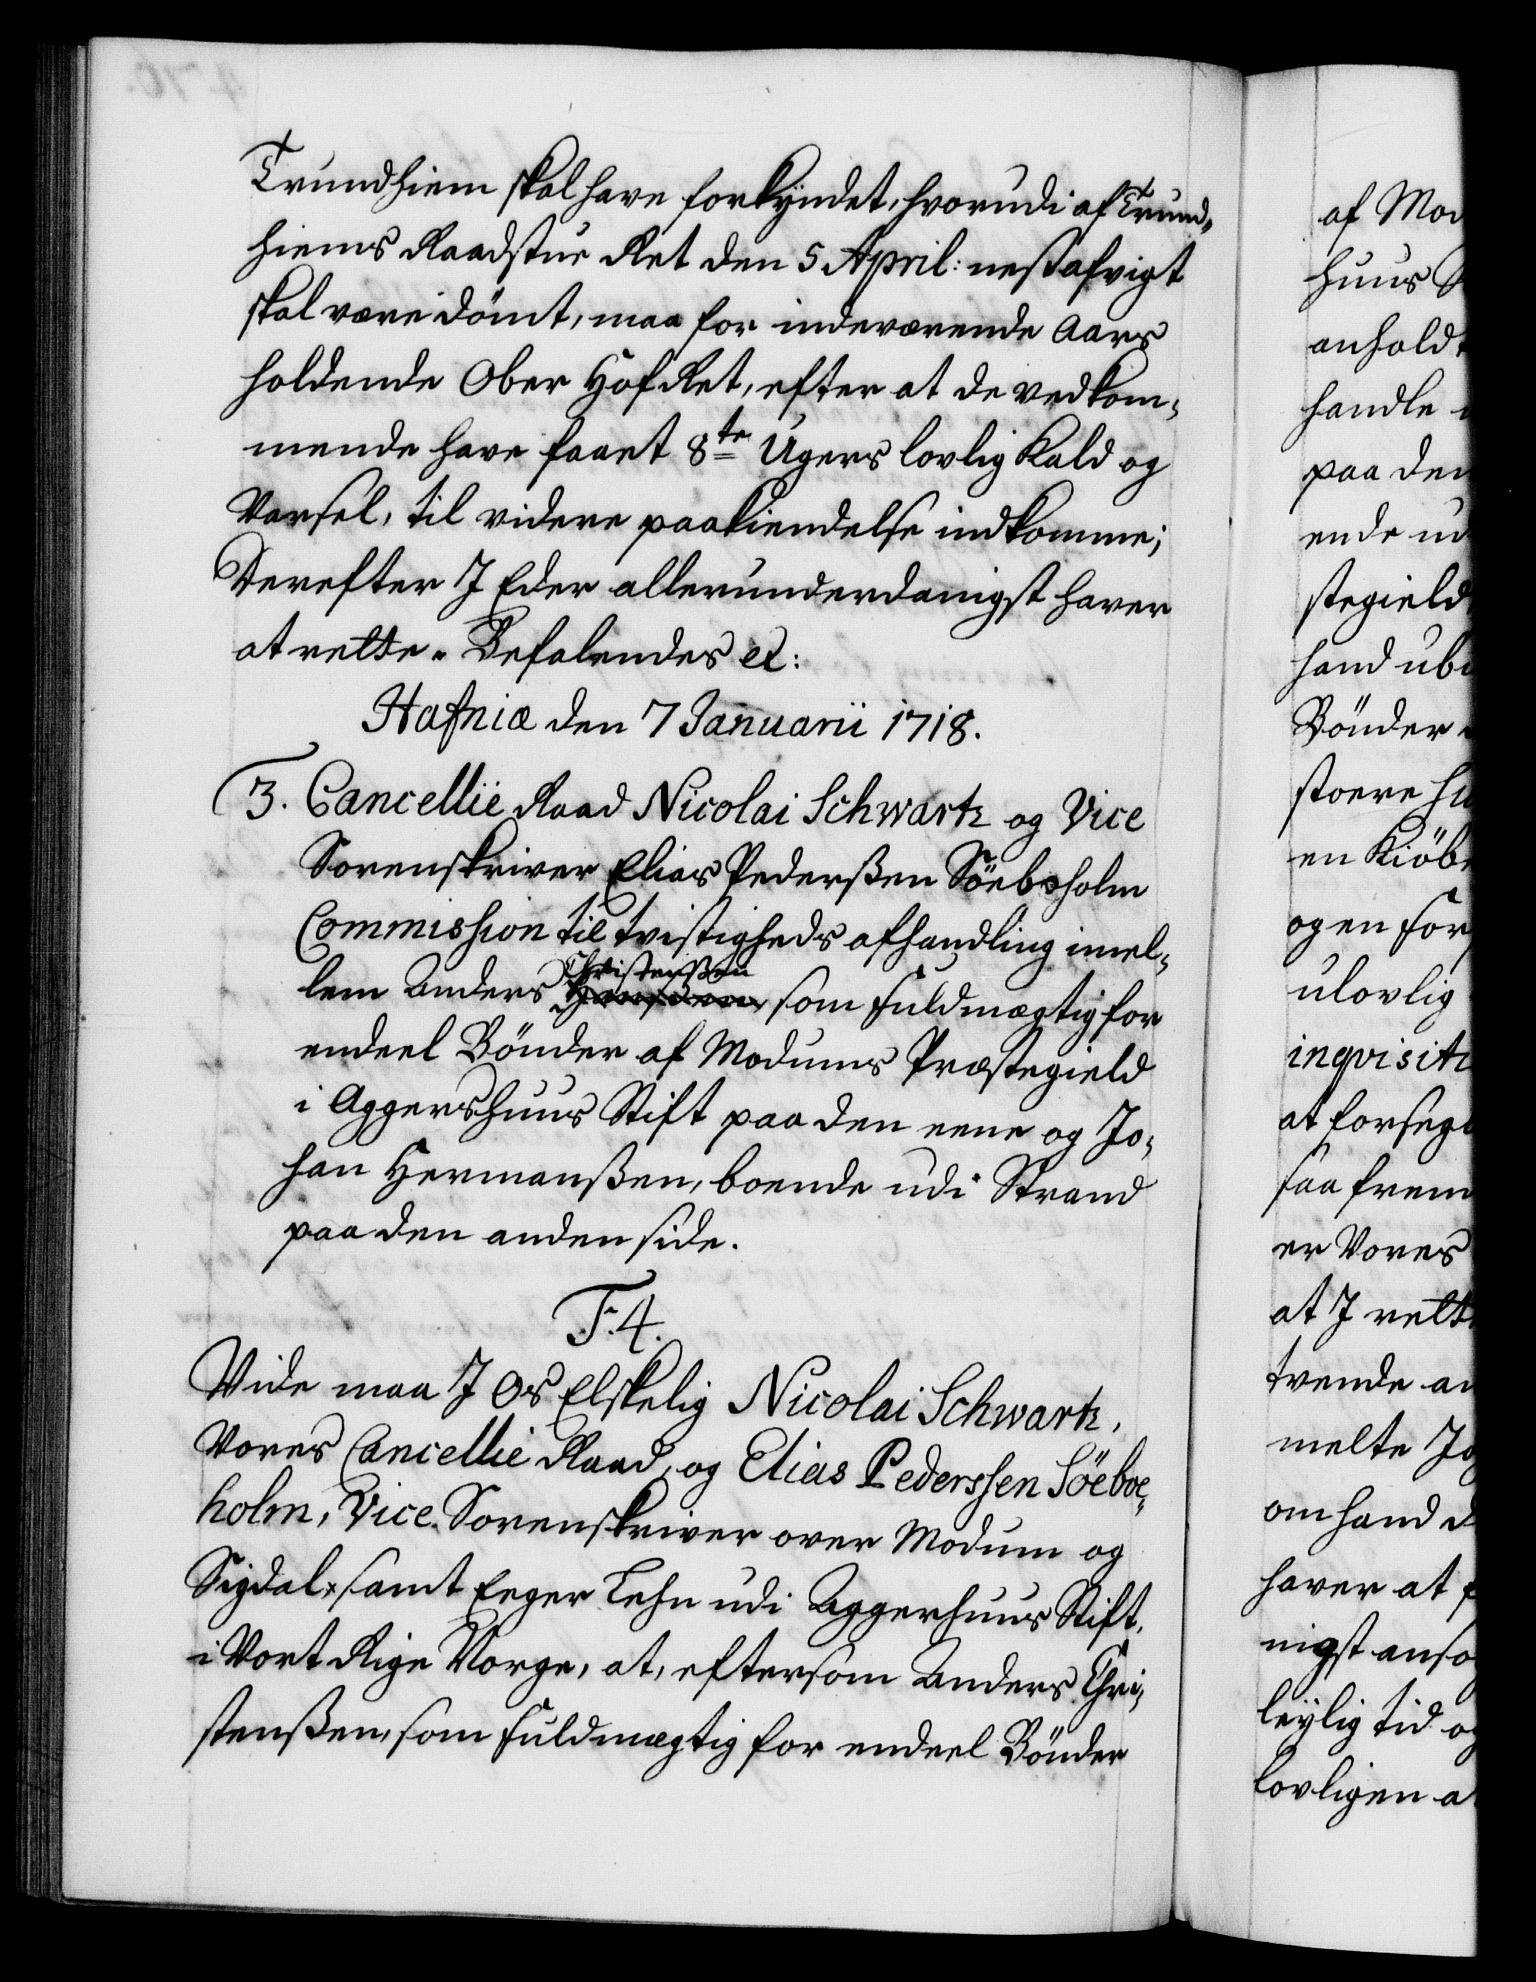 Trundhiem skal have forkyndet, hvorudi af Trund-
hiems Raadstue Ret den 5 April: nestafvigt
skal være dömt, maa for indeværende Aars
holdende Ober Hof Ret, efter at de vedkom-
mende have faaet 8te Ugers lovlig Kald og
Varsel, til videre paakiendelse indkomme;
Derefter I Eder allerunderdanigst haver
at rette. Befalendes etc:
Hafniæ den 7 Januarii 1718.
3. Cancellie Raad Nicolai Schwartz og Vice
Sorenskriver Elias Pederssen Söeboholm
Commission til tvistigheds afhandling imel-
lem Anders Christenssen som fuldmægtig for
endeel Bönder af Modums Præstegield
i Aggershuus Stift paa den eene og Jo-
han Hermanssen, boende udi Strand
paa den anden side.
F. 4.
Vide maa I Os Elskelig Nicolai Schwartz,
Vores Cancellie Raad, og Elias Pederssen Söeboe-
holm, Vice Sorenskriver over Modum og
Sigdal, samt Eeger Lehn udi Aggerhuus Stift,
i Vort Rige Norge, at, eftersom Anders Chri-
stenssen, som fuldmægtig for endeel Bönder
af Mod
huus S
anhold
handle
paa den
ende ud
stegield
hand ube
Bönder
stoere hu
en Kiöb
og en for
ulovlig
inqvisit
at forseg
saa frem
er Vores
at I rett
tvende an
melte Jo
om hand d
haver at f
nigst anso
leylig tid og
lovligen a